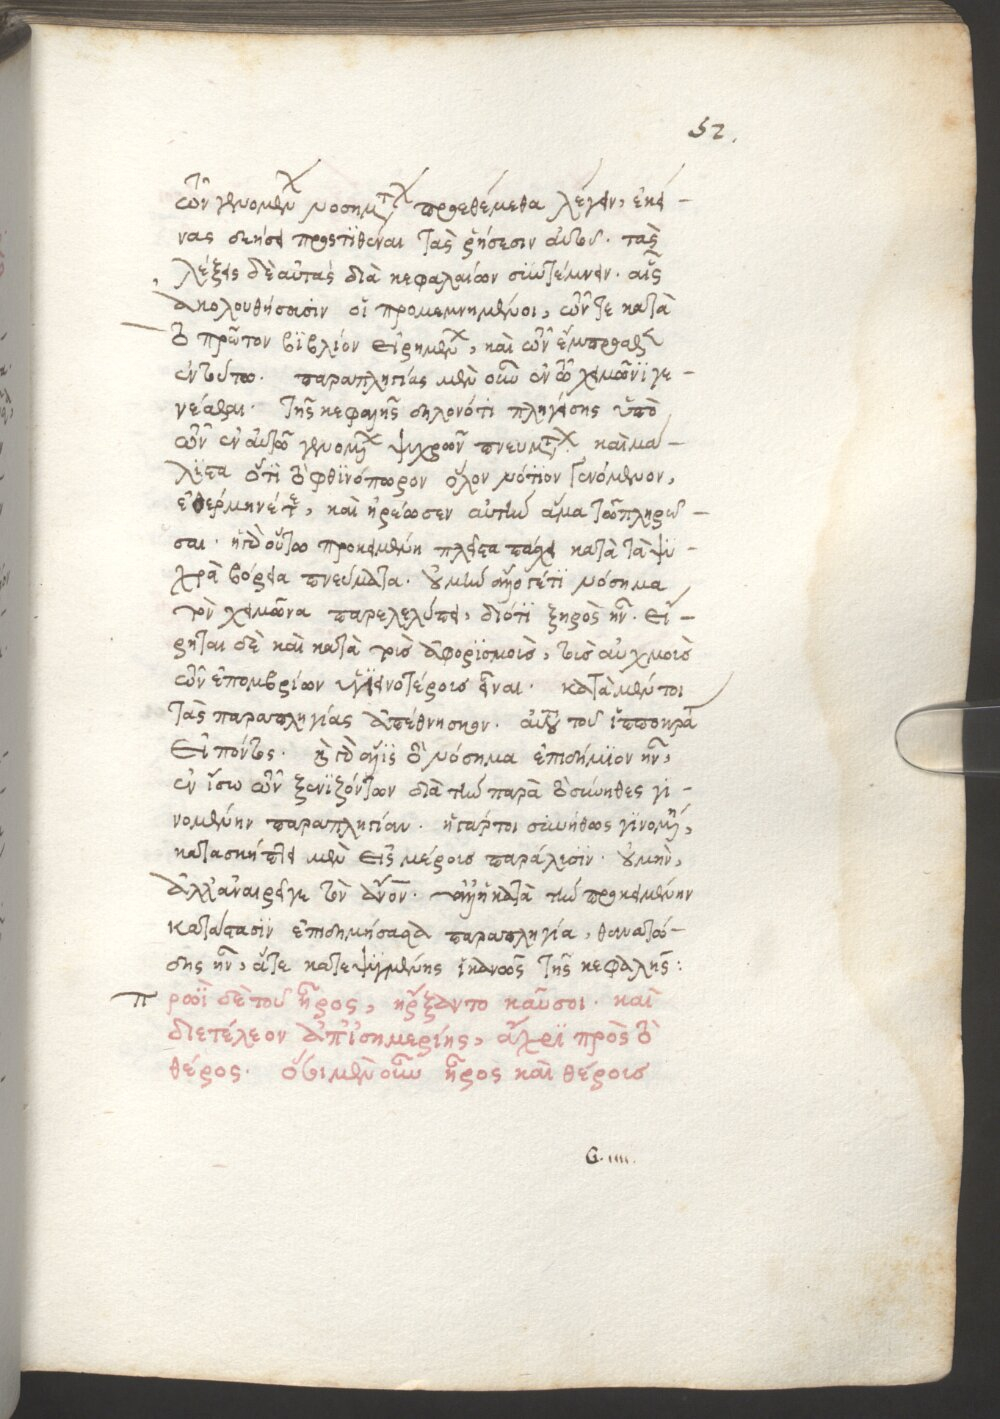 52.
τῶν γενομένων νοσημάτων προεθέμεθα λέγειν, ἐκεί-
νας δεήσει προστιθέναι ταῖς ῥήσεσιν αὐτοῦ. τὰς
λέξεις δὲ αὐτὰς διὰ κεφαλαίων συντέμνειν. αἷς
ἀκολουθήσασιν οἱ προμεμνημένοι, τῶν τε κατὰ
τὸ πρῶτον βιβλίον εἰρημένων, καὶ τῶν ἔμπροσθεν
ἐν τούτῳ. παραπληγίας μὲν οὖν ἐν τῷ χειμῶνι γε-
νέσθαι. τῆς κεφαλῆς δηλονότι πληγείσης ὑπὸ
τῶν ἐν αὐτῷ γενομένων ψυχρῶν πνευμάτων. καὶ μά-
λιστα ὅτι τὸ φθινόπωρον ὅλον νότιον γενόμενον,
ἐθέρμηνέ τε, καὶ ἠραίωσεν αὐτὴν ἅμα τῷ πληρῶ-
σαι. οὕτω προκειμένη πλεῖστα πάσχει κατὰ τὰ ψυ-
χρὰ βόρεια πνεύματα. οὐ μὴν νόσημα
τὸν χειμῶνα παρελελύπει, διότι ξηρὸς ἦν. εἴ-
ρηται δὲ καὶ κατὰ τοὺς ἀφορισμοὺς, τοὺς αὐχμοὺς
τῶν ἐπομβριῶν ὑγιεινοτέρους εἶναι. κατὰ μέντοι
τὰς παραπληγίας ἀπέθνησκον. αὐτοῦ τοῦ ἱπποκράτους
εἰπόντος. τὸ νόσημα ἐπιδήμιον ἦν,
ἐν ἴσῳ τῶν ξενιζόντων διὰ τὴν παρὰ τὸ σύνηθες γι-
νομένην παραπληγίαν. ἡ γάρ τοι συνήθως γινομένη,
κατασκήπτει μὲν εἰς μέρους παράλυσιν. οὐ μὴν,
ἀλλ' ἀναιρεῖ γε τὸν ἄνθρωπον. ἀλλ' ἡ κατὰ τὴν προκειμένην
κατάστασιν ἐπιδημήσασα παραπληγία, θανατώ-
δης ἦν, ἅτε κατεψυγμένης ἱκανῶς τῆς κεφαλῆς:
πρωῒ δὲ τοῦ ἦρος, ἤρξαντο καῦσοι. καὶ
διετέλεον ἀπ' ἰσημερίης, ἄχρι πρὸς τὸ
θέρος. ὅσοι μὲν οὖν ἦρος καὶ θέρους
G.iiii.